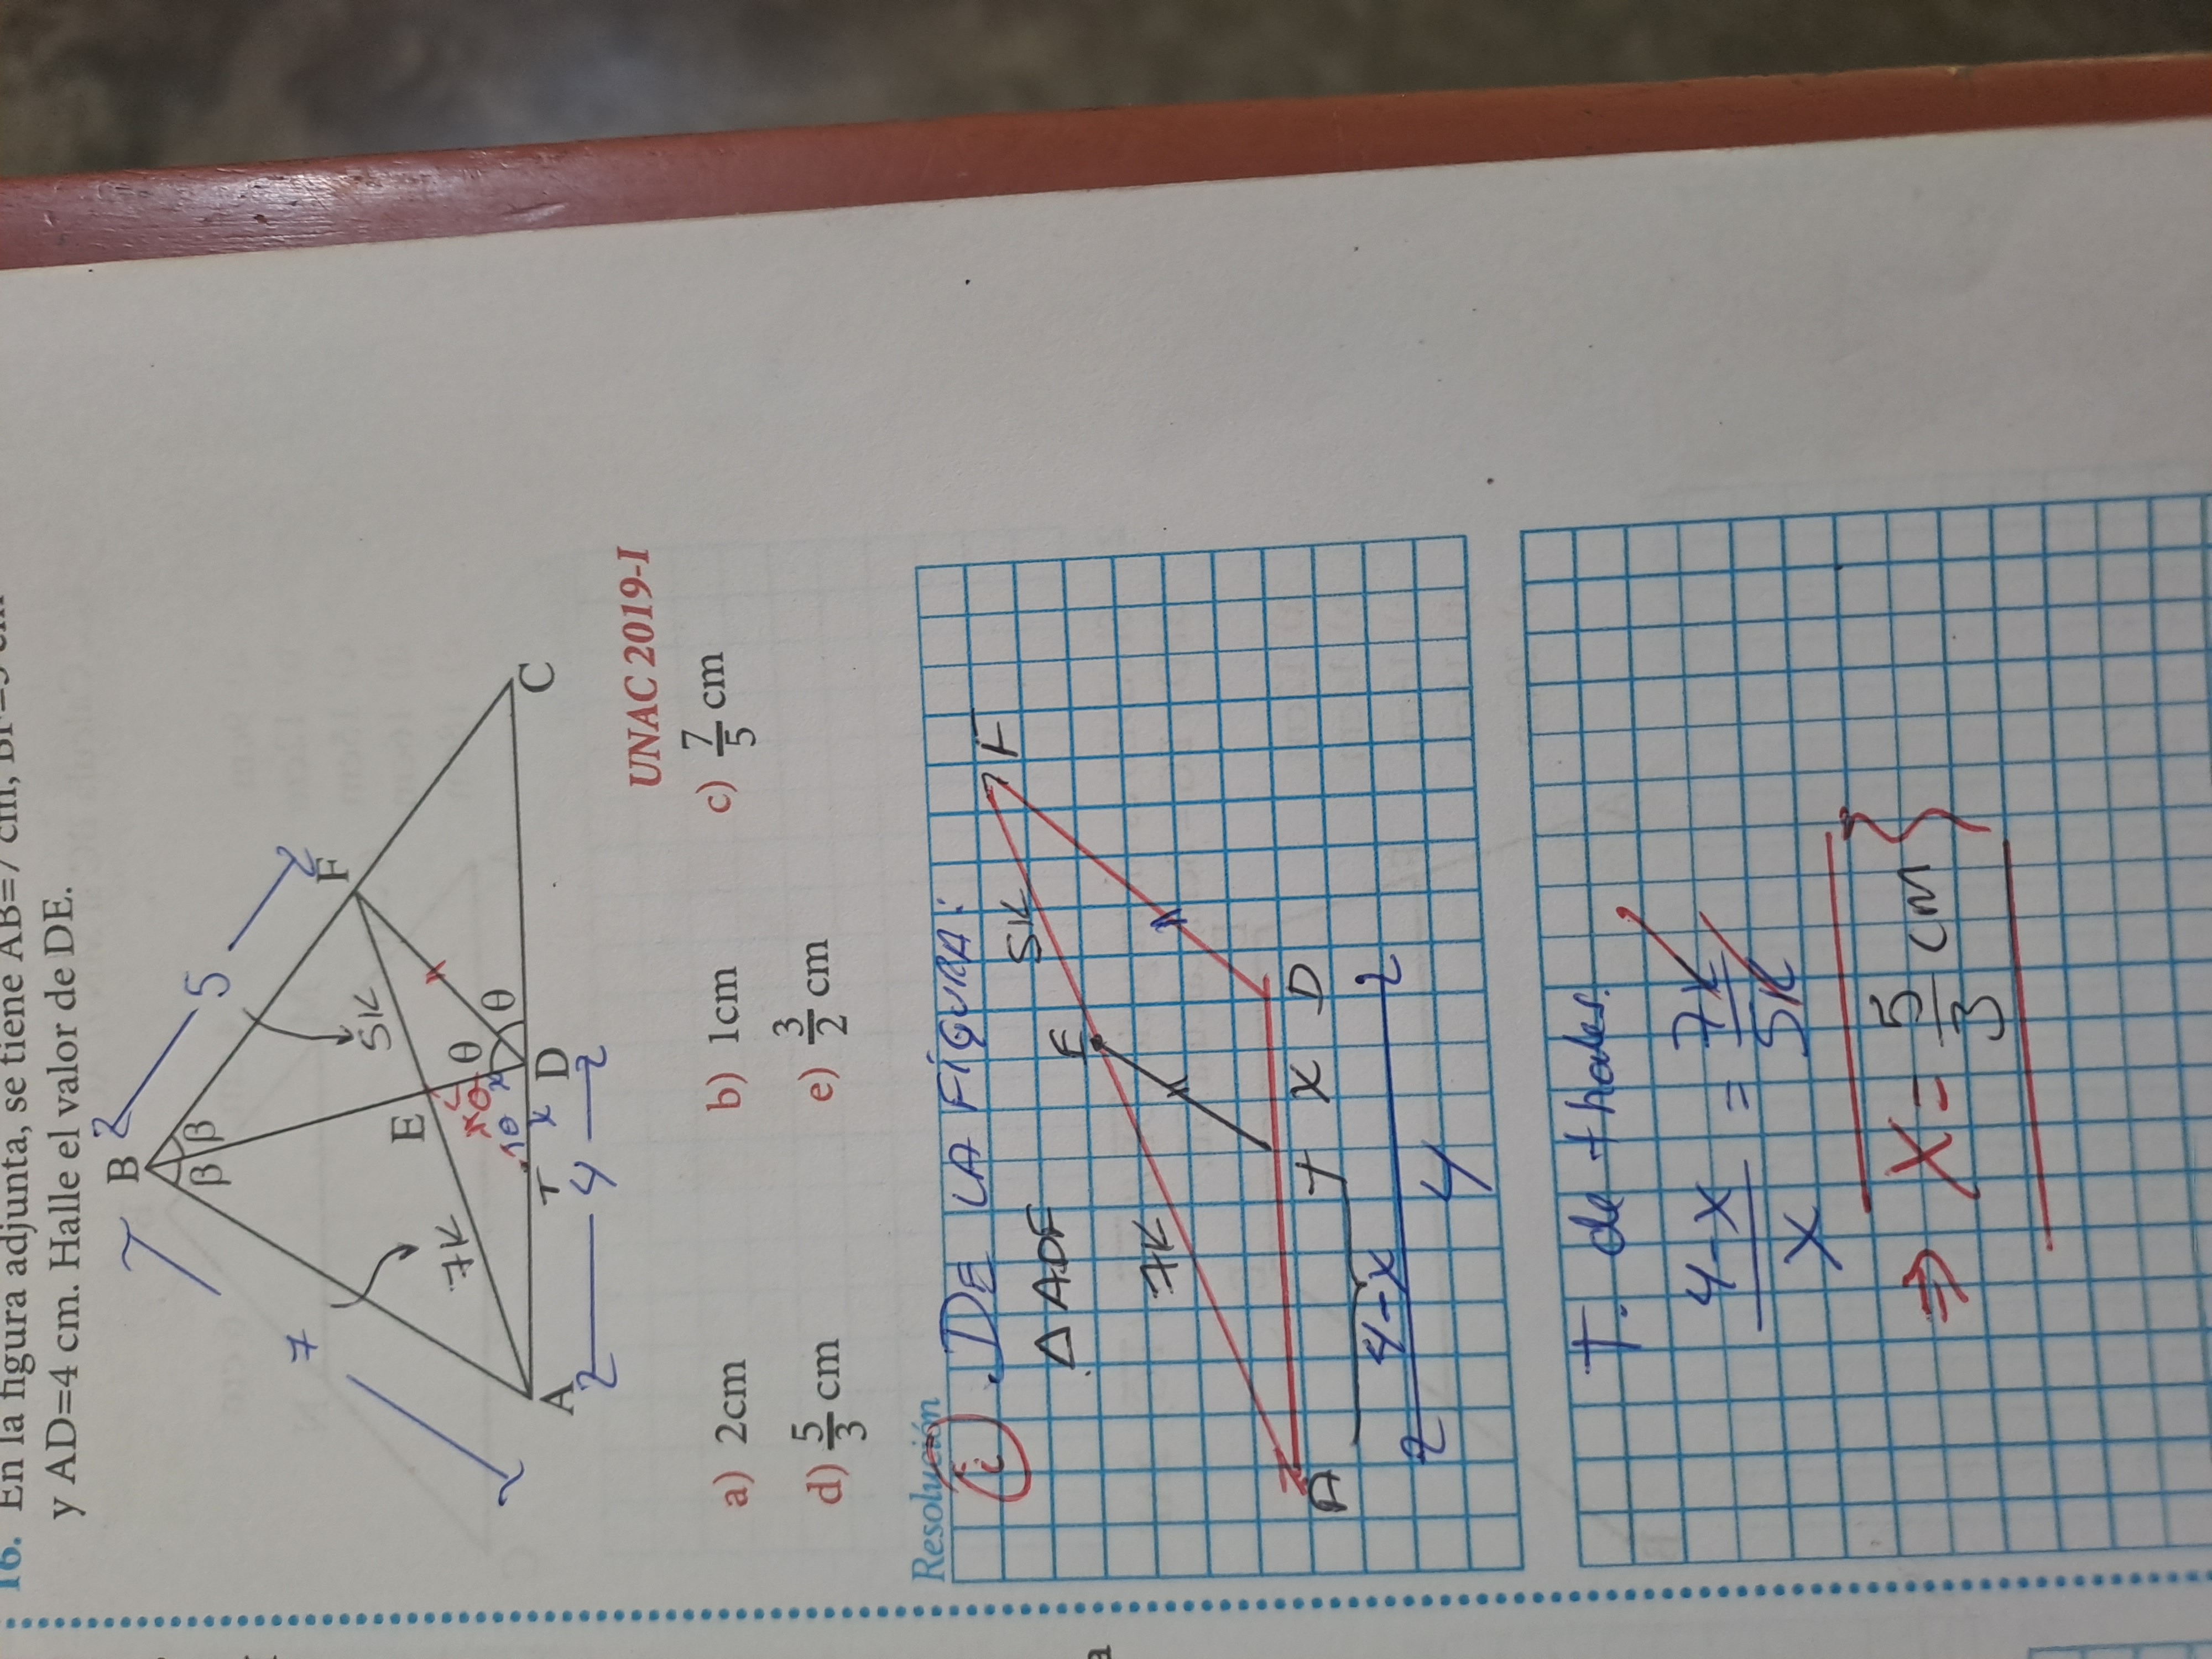 16. En la figura adjunta, se tiene AB=7 cm, BF=5 cm
y AD=4 cm. Halle el valor de DE.
B
β β
5
7
F
5K
E
7K
θ
θ
x
θ
θ
x
A
T
x
D
C
4
UNAC 2019-I
a) 2cm
b) 1cm
c) 7/5 cm
d) 5/3 cm
e) 3/2 cm
Resolución
i . DE LA FIGURA:
Δ ADF
5K
F
E
7K
x
A
T
x
D
4-x
4
T. de thales.
4-x / x = 7K / 5K
⇒ x = 5/3 cm